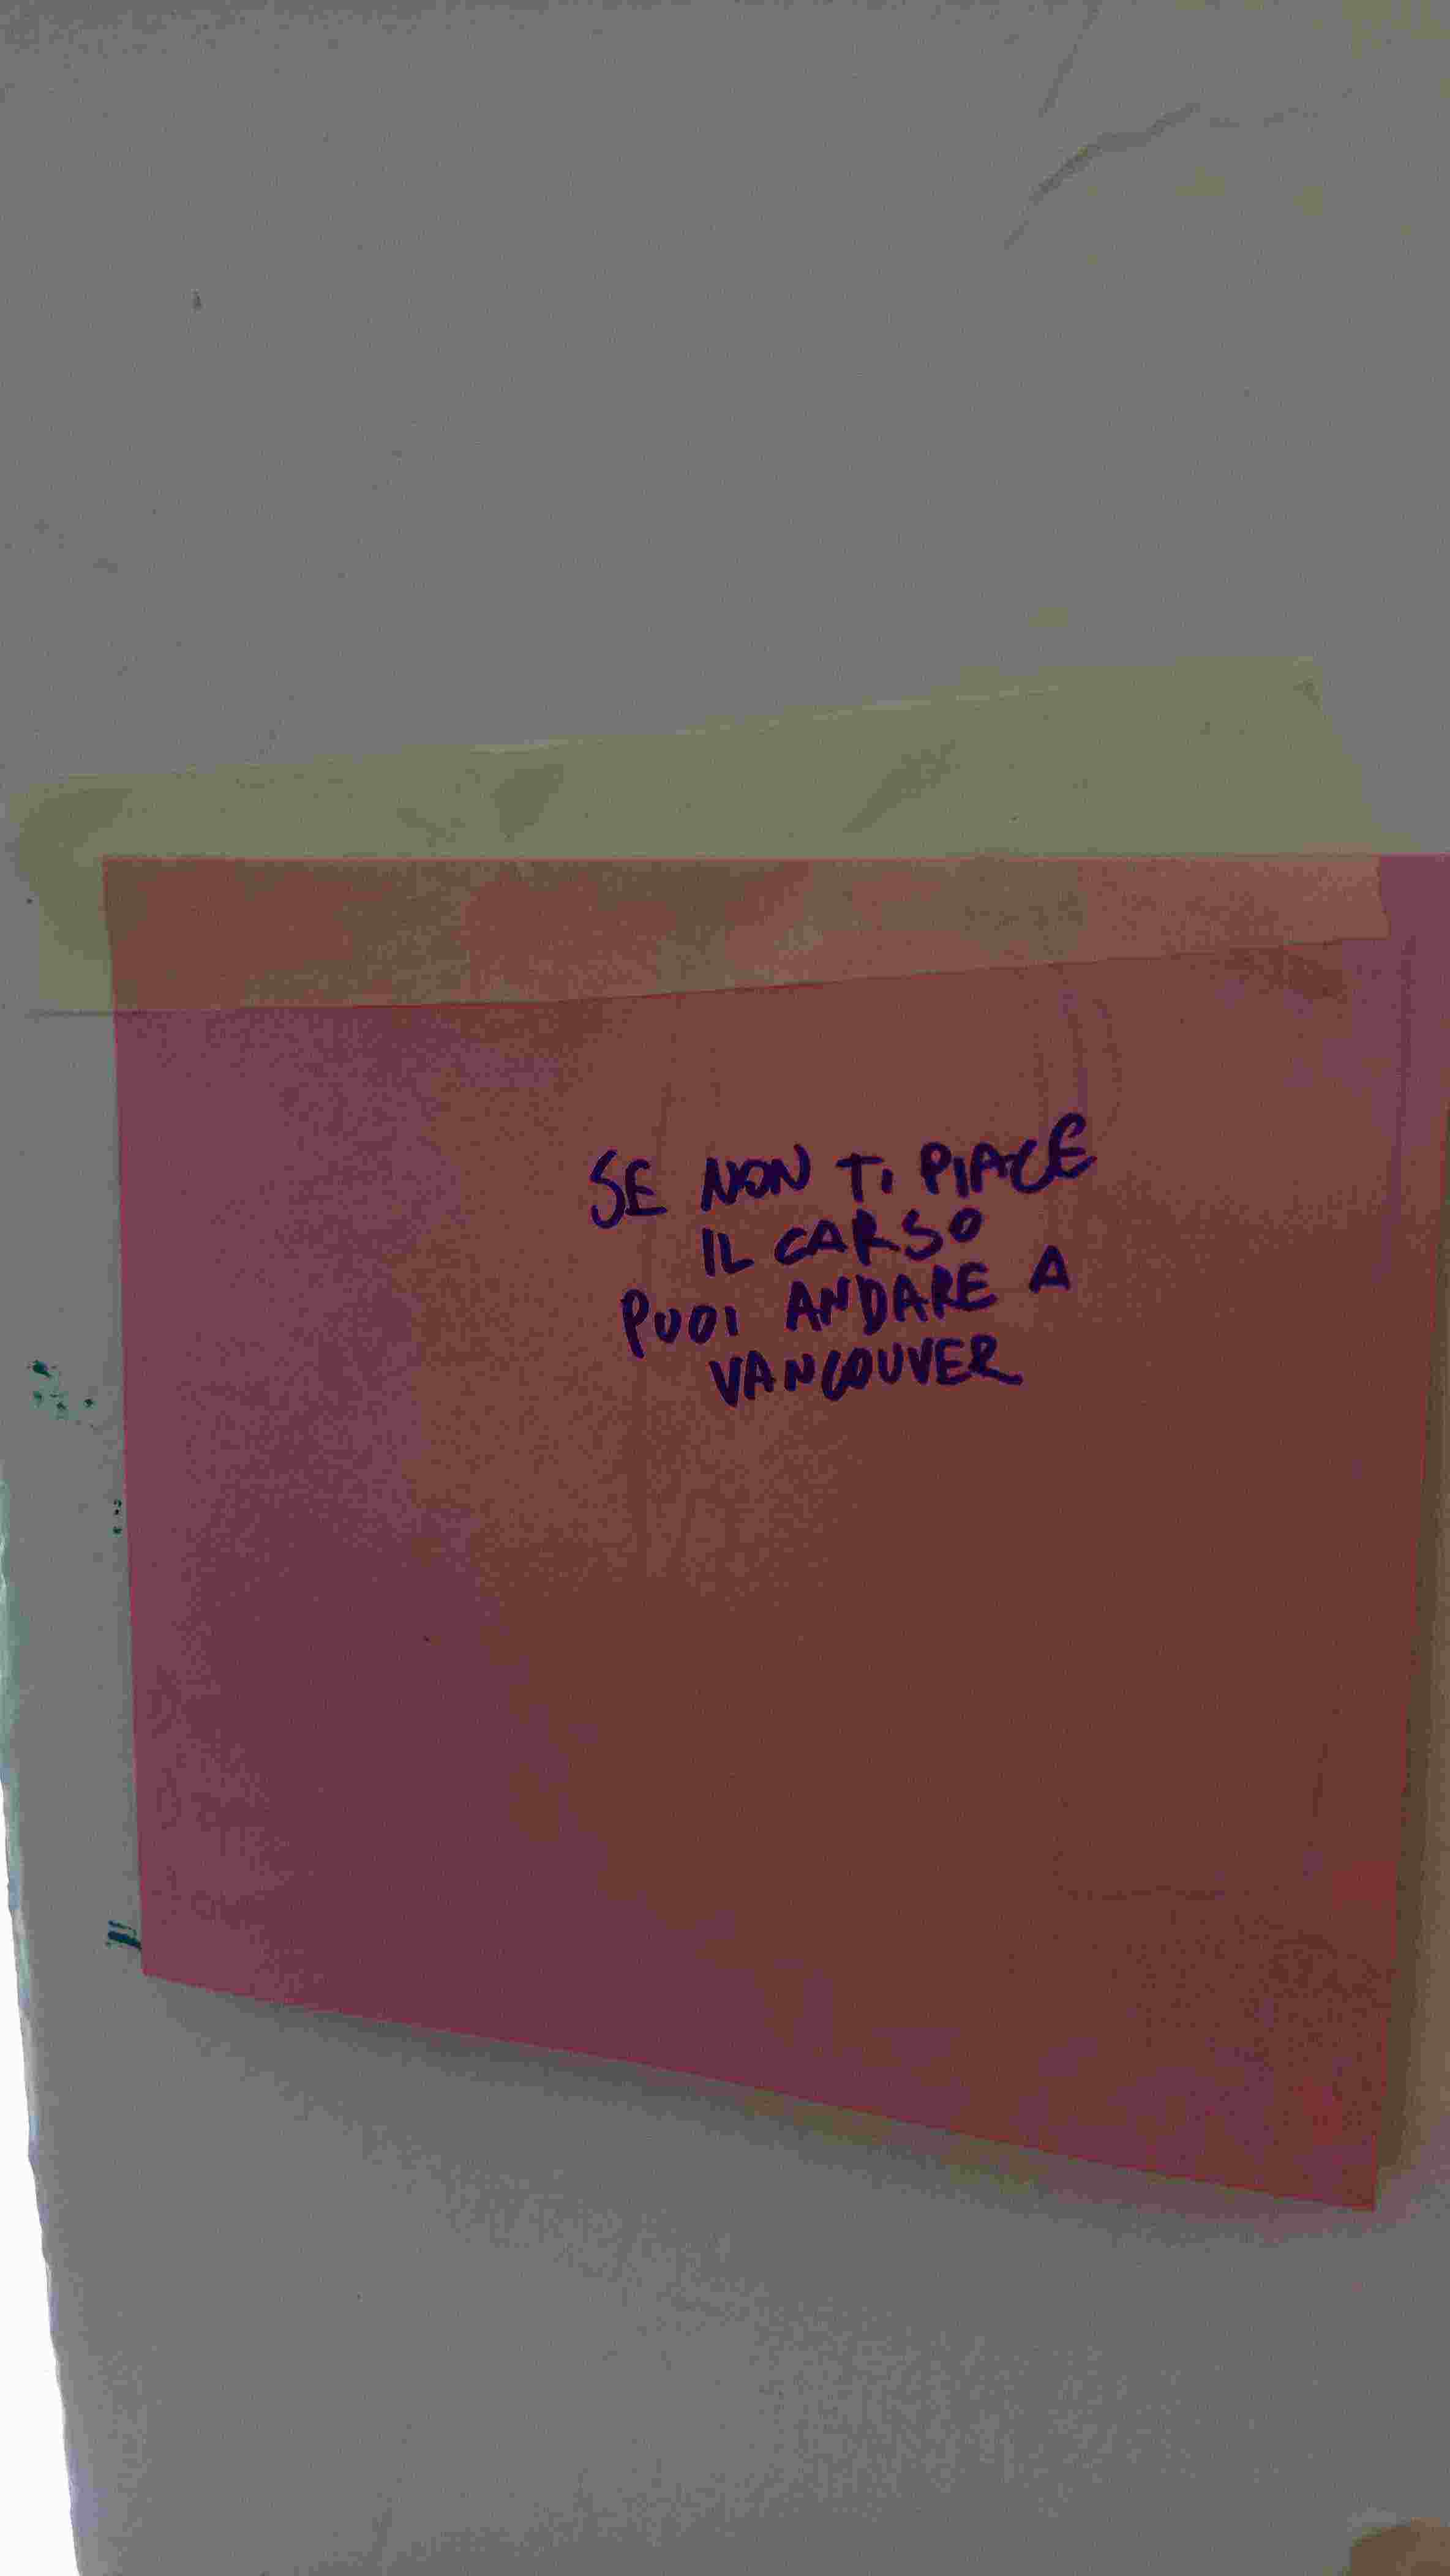 SE NON TI PIACE
IL CARSO
PUOI ANDARE A
VANCOUVER